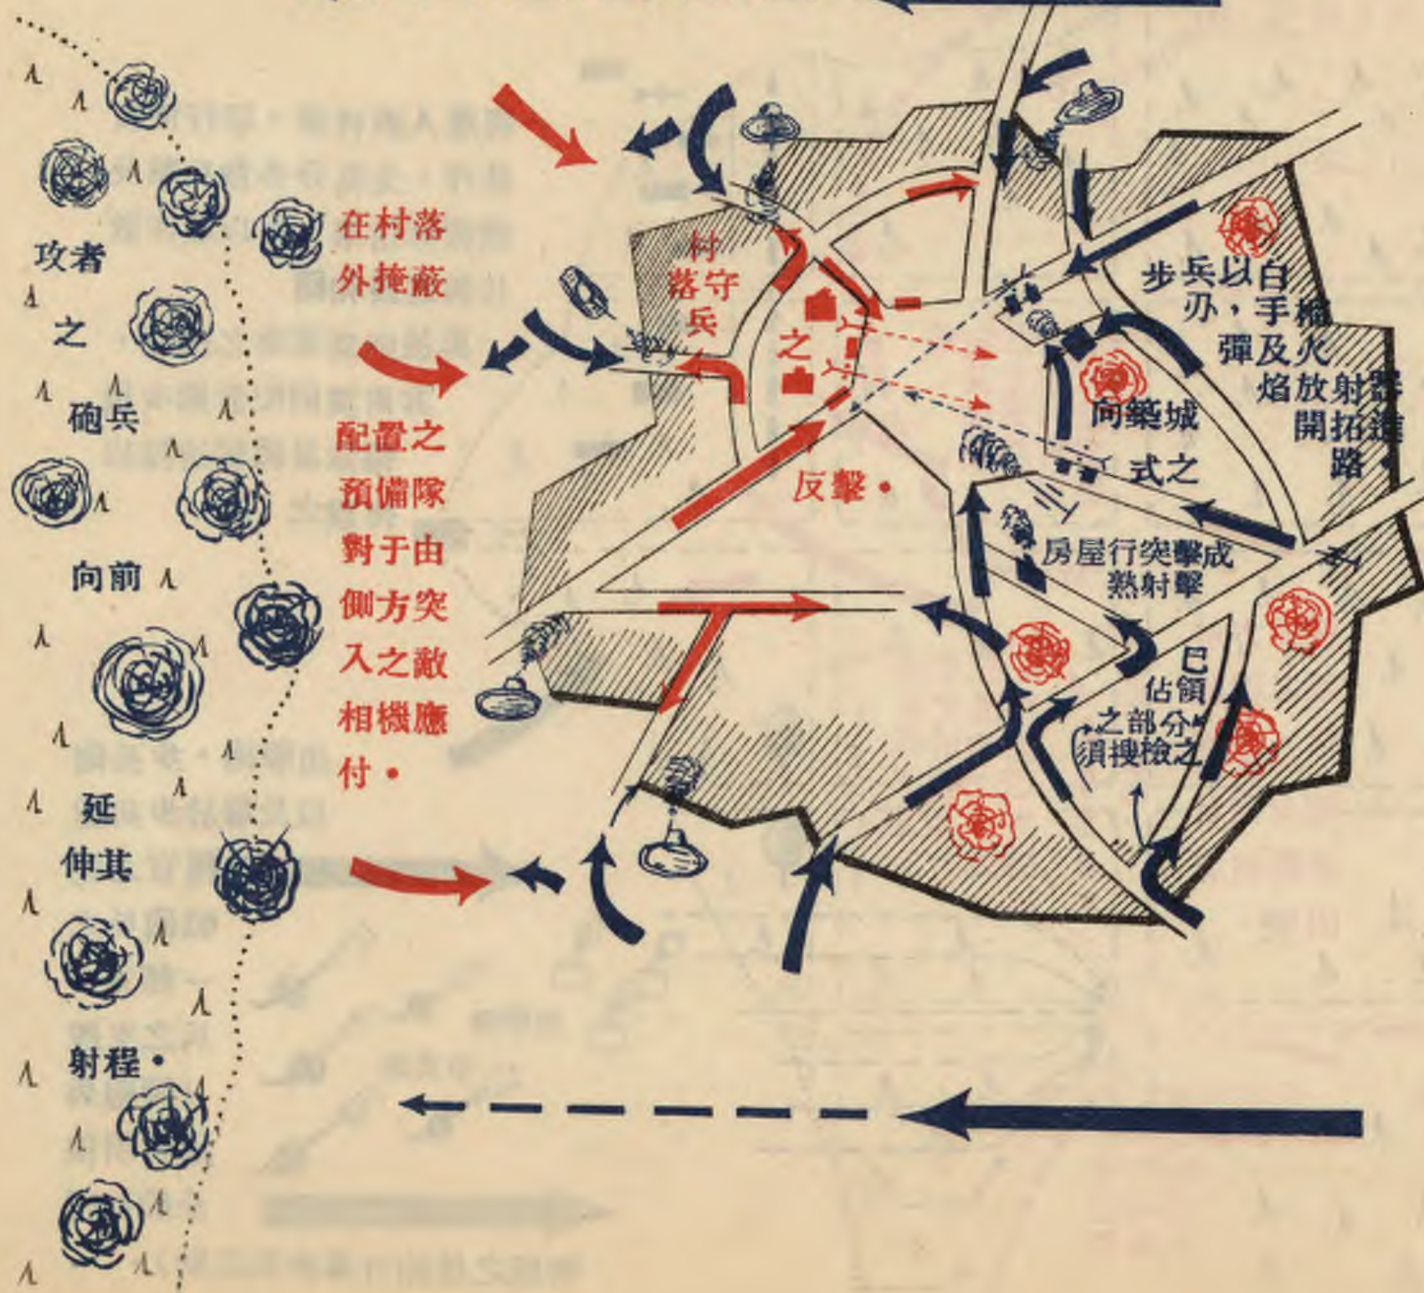 攻者
之
砲兵
向前
延
伸其
射程・
在村落
外掩蔽
配置之
預備隊
對于由
側方突
入之敵
相機應
付・
村
落守
兵
之
反擊・
步兵以白
刃，手榴
彈及火
焰放射器
開拓進
路・
向築城
式之
房屋行突擊成
熟射擊
已
佔領
之部分
須搜檢之